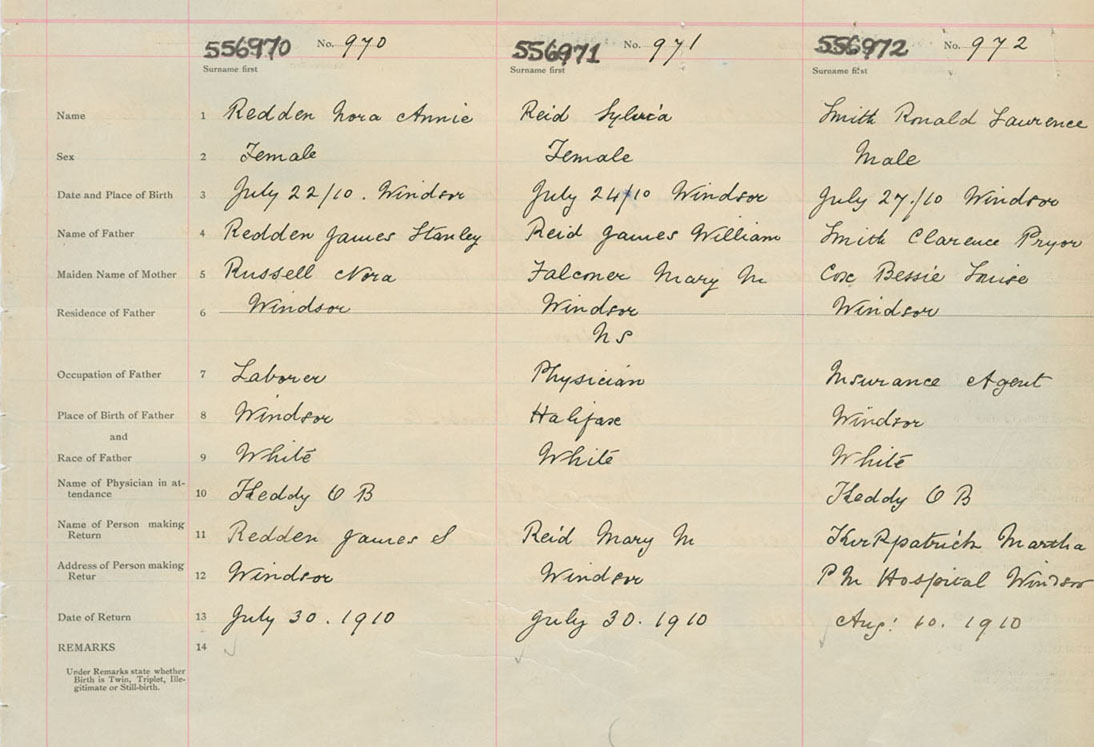 556970 No. 970 556971 No. 971 556972 No. 972
Surname first Surname first Surname first
Name 1 Redden Nora Annie Reid Sylvia Smith Ronald Laurence
Sex 2 Female Female Male
Date and Place of Birth 3 July 22/10. Windsor July 24/10 Windsor July 27/10 Windsor
Name of Father 4 Redden James Stanley Reid James William Smith Clarence Pryor
Maiden Name of Mother 5 Russell Nora Falconer Mary M Cox Bessie Louise
Residence of Father 6 Windsor Windsor Windsor
NS
Occupation of Father 7 Laborer Physician Insurance Agent
Place of Birth of Father 8 Windsor Halifax Windsor
and
Race of Father 9 White White White
Name of Physician in at-
tendance 10 Keddy O B Keddy O B
Name of Person making
Return 11 Redden James S Reid Mary M Kirkpatrick Martha
Address of Person making
Retur 12 Windsor Windsor P M Hospital Windsor
Date of Return 13 July 30. 1910 July 30. 1910 Aug: 10. 1910
REMARKS 14
Under Remarks state whether
Birth is Twin, Triplet, Ille-
gitimate or Still-birth.